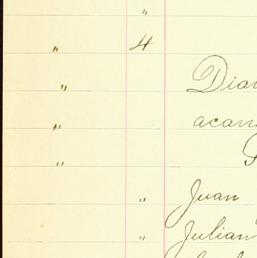 "
" 4
"
Dia
" acam
"
" Juan
" Julian